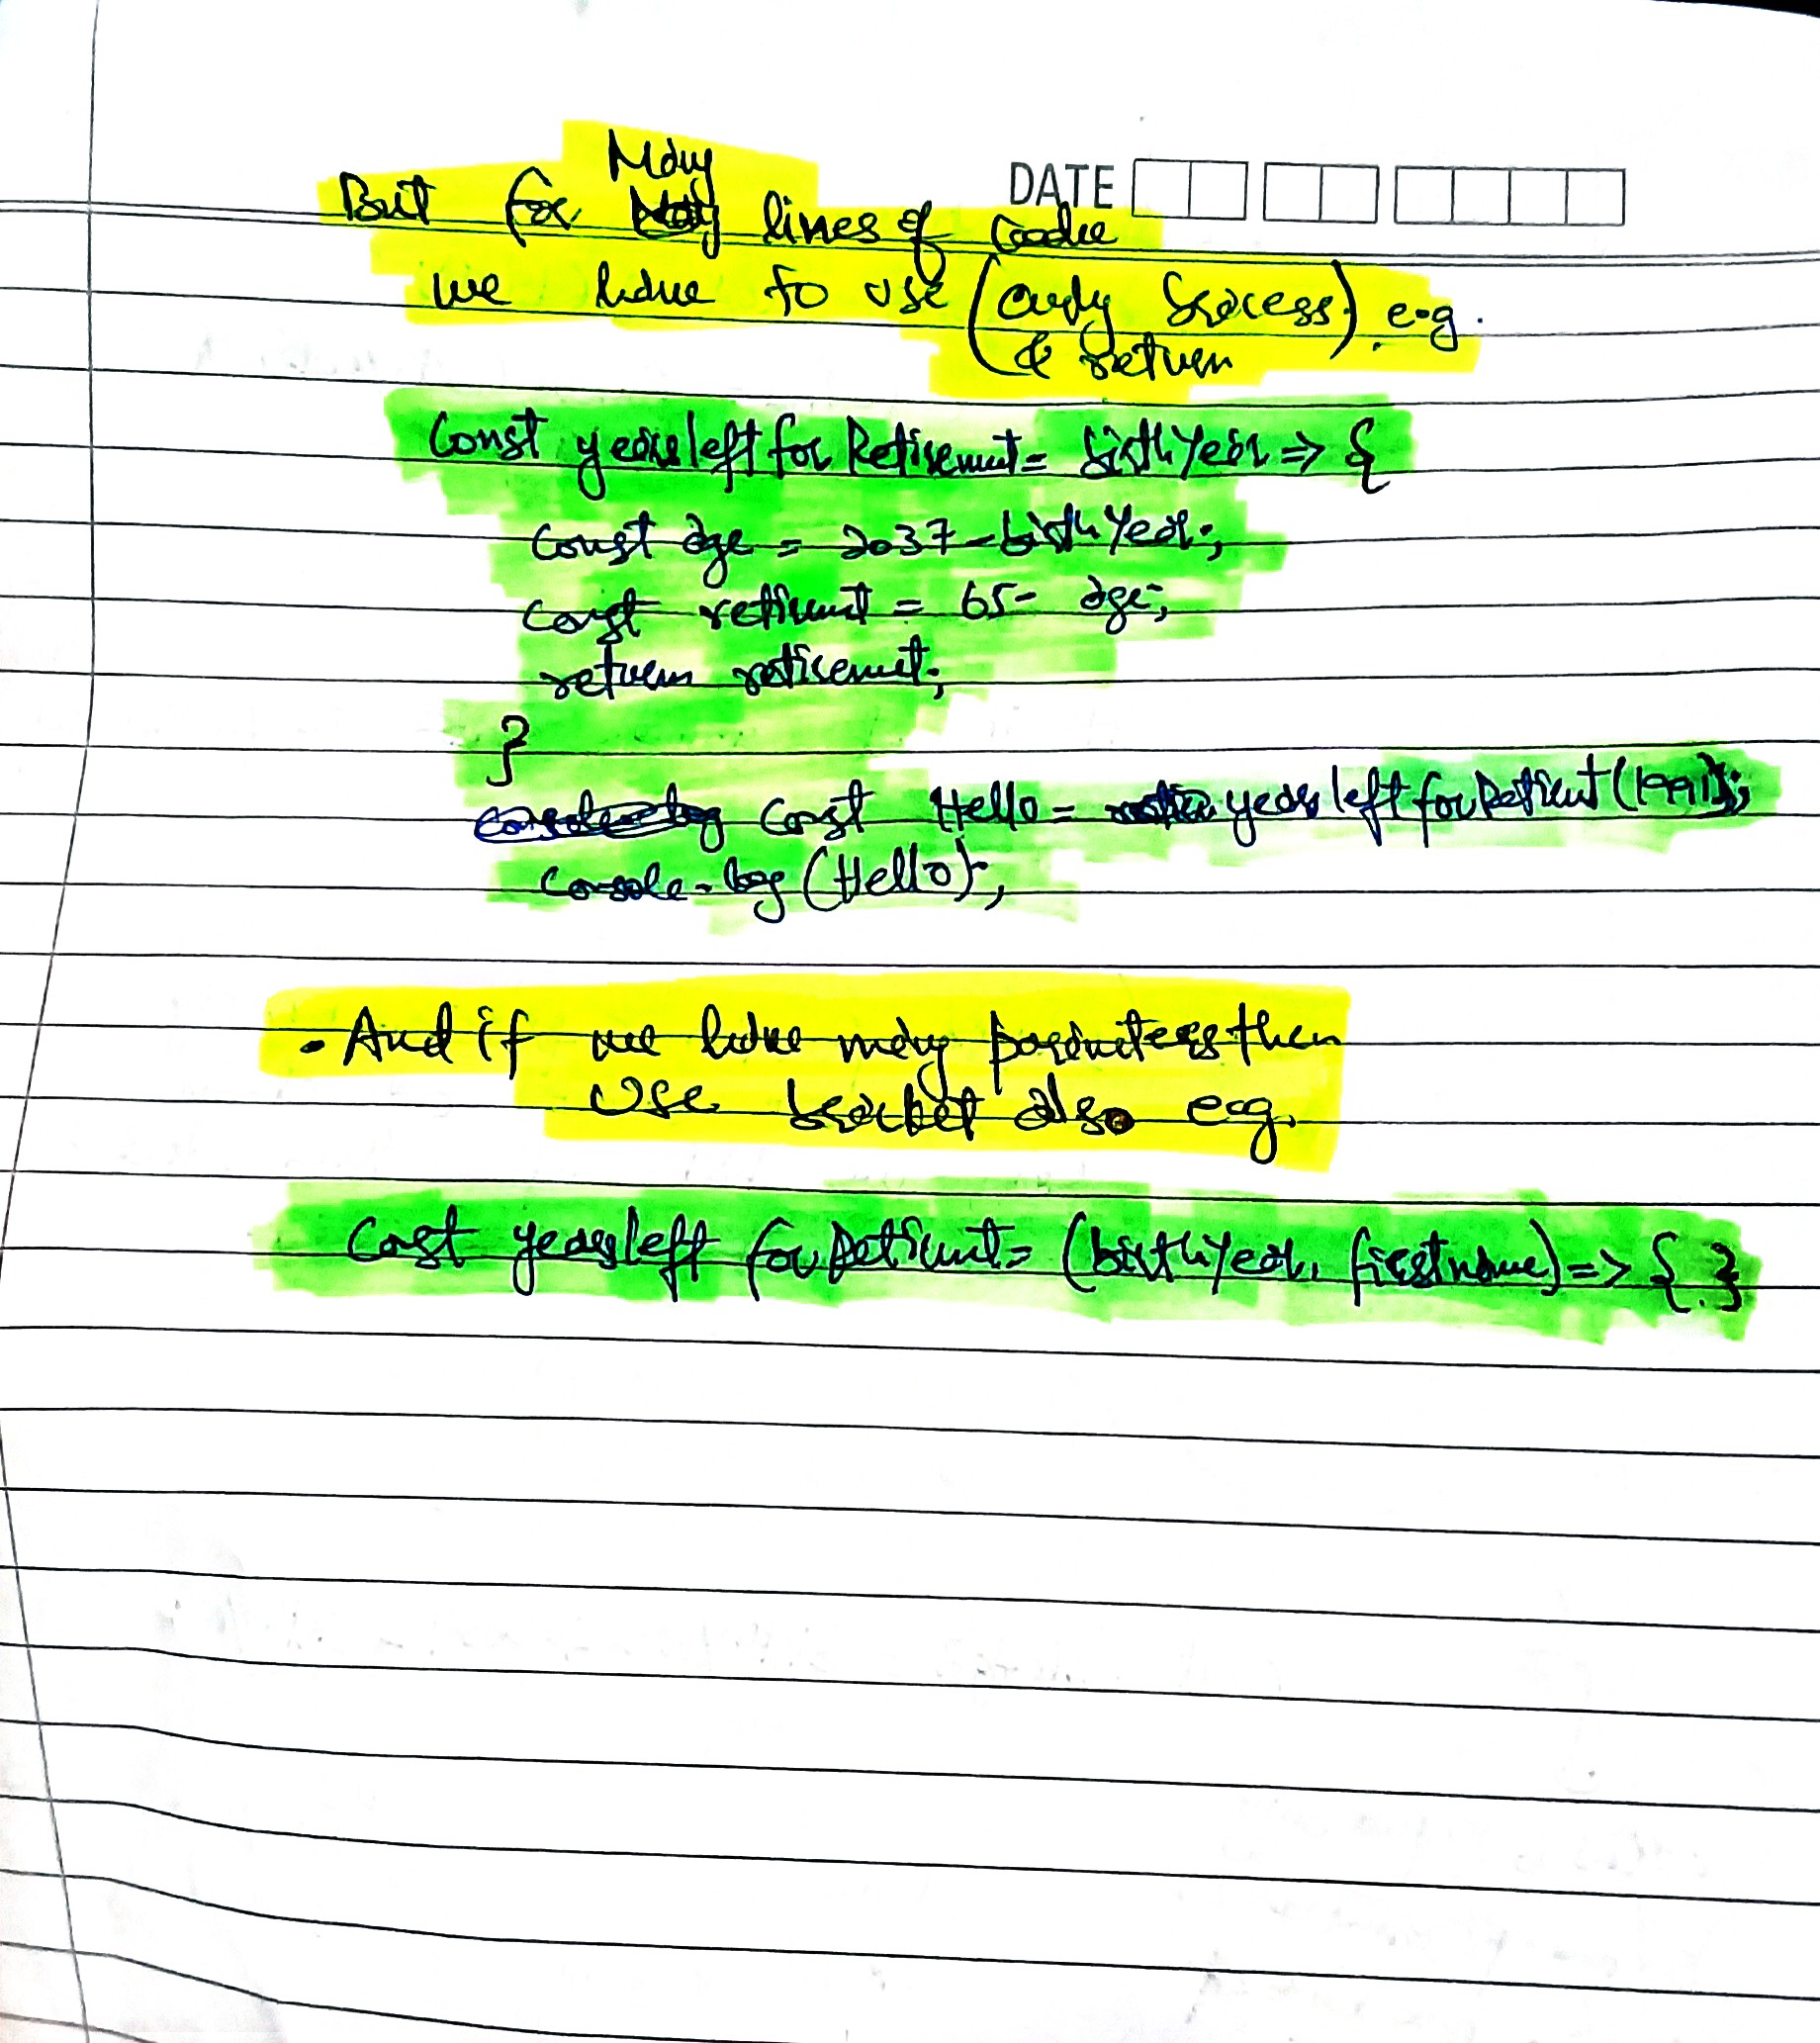 DATE
But for Many lines of code
we have to use (curly bracess) e.g.
& return
Const yearsleft for Retirement = birthYear => {
const age = 2037 - birthYear;
const retirement = 65 - age;
return retirement;
}
const Hello = years left for Retirement (1991);
console.log (Hello);
• And if we have many parameters then
use bracket also e.g.
Const yearsleft for Retirement = (birthYear, firstname) => { }